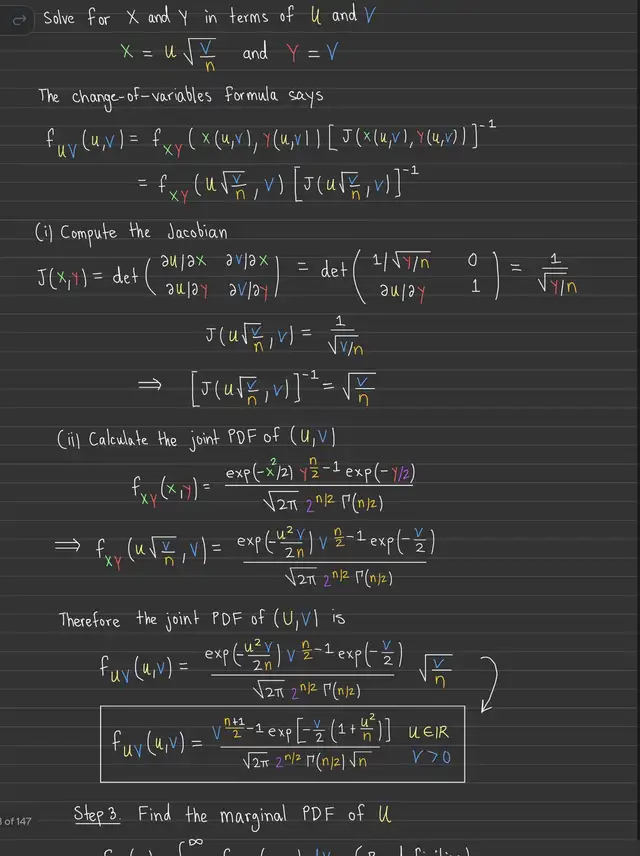 Solve for X and Y in terms of U and V
X = u √(V/n) and Y = V
The change-of-variables formula says
f_UV(u,v) = f_XY(x(u,v), y(u,v)) [J(x(u,v), y(u,v))]^-1
= f_XY(u√(v/n), v) [J(u√(v/n), v)]^-1
(i) Compute the Jacobian
J(x,y) = det(∂u/∂x ∂v/∂x; ∂u/∂y ∂v/∂y) = det(1/√(y/n) 0; ∂u/∂y 1) = 1/√(y/n)
J(u√(v/n), v) = 1/√(v/n)
⟹ [J(u√(v/n), v)]^-1 = √(v/n)
(ii) Calculate the joint PDF of (U,V)
f_XY(x,y) = exp(-x²/2) y^(n/2 - 1) exp(-y/2) / √2π 2^(n/2) Γ(n/2)
⟹ f_XY(u√(v/n), v) = exp(-u²v/2n) v^(n/2 - 1) exp(-v/2) / √2π 2^(n/2) Γ(n/2)
Therefore the joint PDF of (U,V) is
f_UV(u,v) = exp(-u²v/2n) v^(n/2 - 1) exp(-v/2) / √2π 2^(n/2) Γ(n/2) √(v/n)
f_UV(u,v) = v^((n+1)/2 - 1) exp[-v/2 (1 + u²/n)] / √2π 2^(n/2) Γ(n/2) √n u∈ℝ v>0
Step 3. Find the marginal PDF of U
of 147